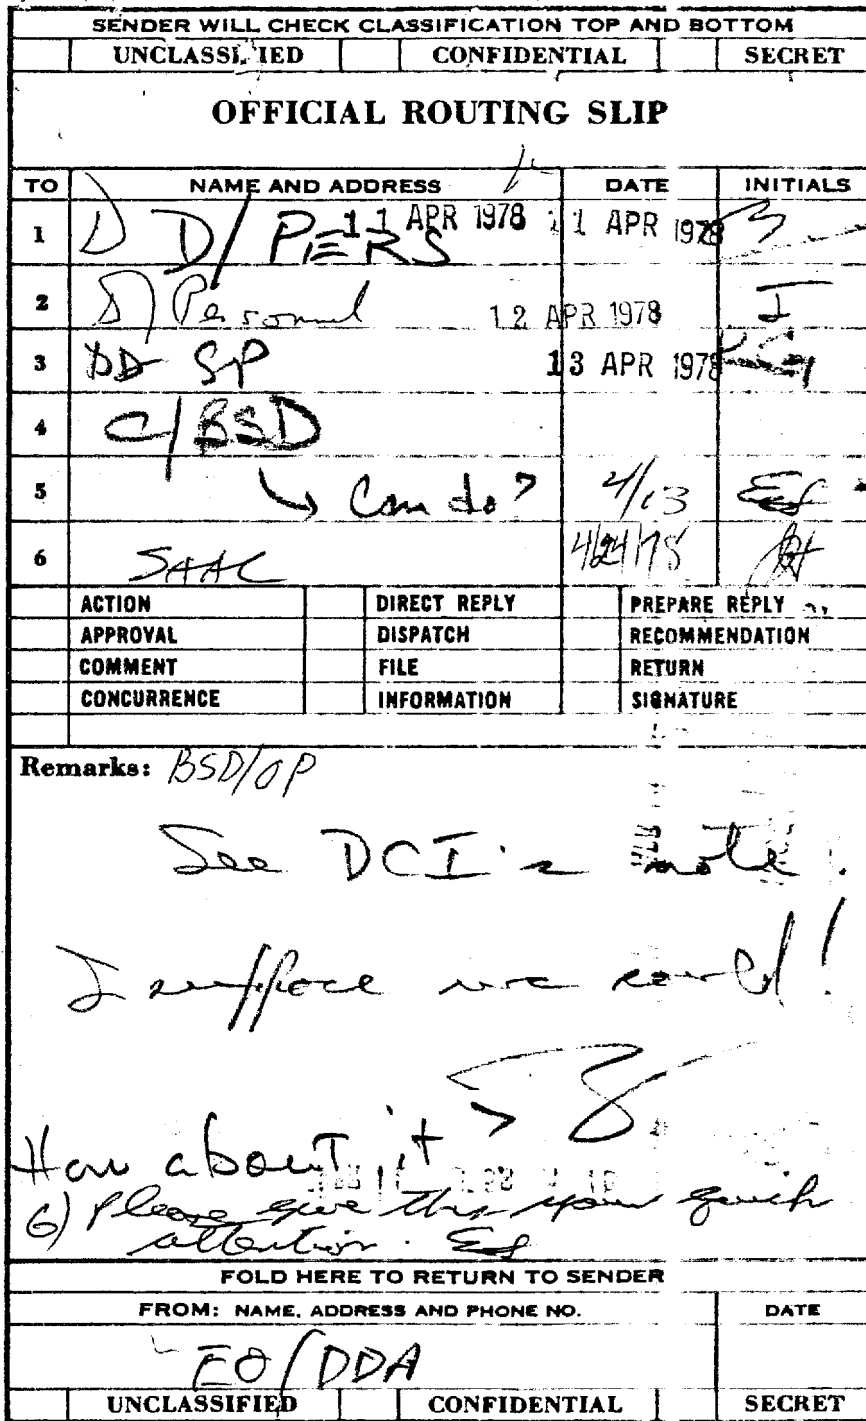 SENDER WILL CHECK CLASSIFICATION TOP AND BOTTOM
UNCLASSIFIED CONFIDENTIAL SECRET
OFFICIAL ROUTING SLIP
TO NAME AND ADDRESS DATE INITIALS
1 D D/PERS 11 APR 1978 11 APR 1978
2 D/Personnel 12 APR 1978
3 DD SP 13 APR 1978
4 C/BSD
5 Can do? 4/13
6 SAAC 4/24/78
ACTION DIRECT REPLY PREPARE REPLY
APPROVAL DISPATCH RECOMMENDATION
COMMENT FILE RETURN
CONCURRENCE INFORMATION SIGNATURE
Remarks: BSD/OP
See DCI's note.
I suppose we could!
How about it?
6) Please give this your quick
attention.
FOLD HERE TO RETURN TO SENDER
FROM: NAME, ADDRESS AND PHONE NO. DATE
EO/DDA
UNCLASSIFIED CONFIDENTIAL SECRET